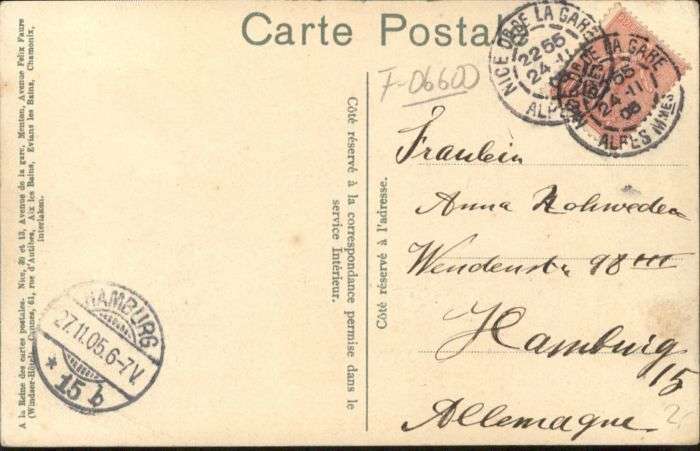 Carte Postale
F-06600
NICE QR DE LA GARE
22 55
24 -11
ALPES
DE LA GARE
24 -11
05
ALPES MMES
Fräulein
Anna Rohweder
Wendenstr 98 III
Hamburg
15
Allemagne
Côté réservé à l'adresse.
Côté réservé à la correspondance permise dans le
service Intérieur.
A la Reine des cartes postales. Nice, 39 et 13, Avenue de la gare, Menton, Avenue Felix Faure
(Windser-Hôtel) Cannes, 61, rue d'Antibes, Aix les Bains, Evians les Bains, Chamonix,
Interlaken.
HAMBURG
27.11.05.6-7V.
* 15 b